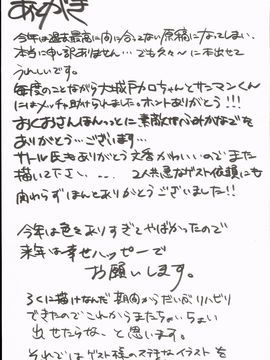 あとがき
今年は過去最高に間に合ってない原稿になってしまい
本当に申し訳ありません…でも久々に本出せて
うれしいです。
毎度のことながら大城戸カロちゃんとサンマンくん
にはメッチャ助けられました。ホントありがとう!!!
おくおさんほんっとに素敵な
ありがとう…ございます…
サトル氏もありがとう文香かわいいのでまた
描いて下さい… 2人共急なゲスト依頼にも
関わらずほんとありがとうございました!!
今年は色々ありすぎてやばかったので
来年は幸せハッピーで
お願いします。
ろくに描けなんだ期間からだいぶリハビリ
できたのでこれからまたちょいちょい
出せたらな、と思います。
それではゲスト様のステキなイラストを